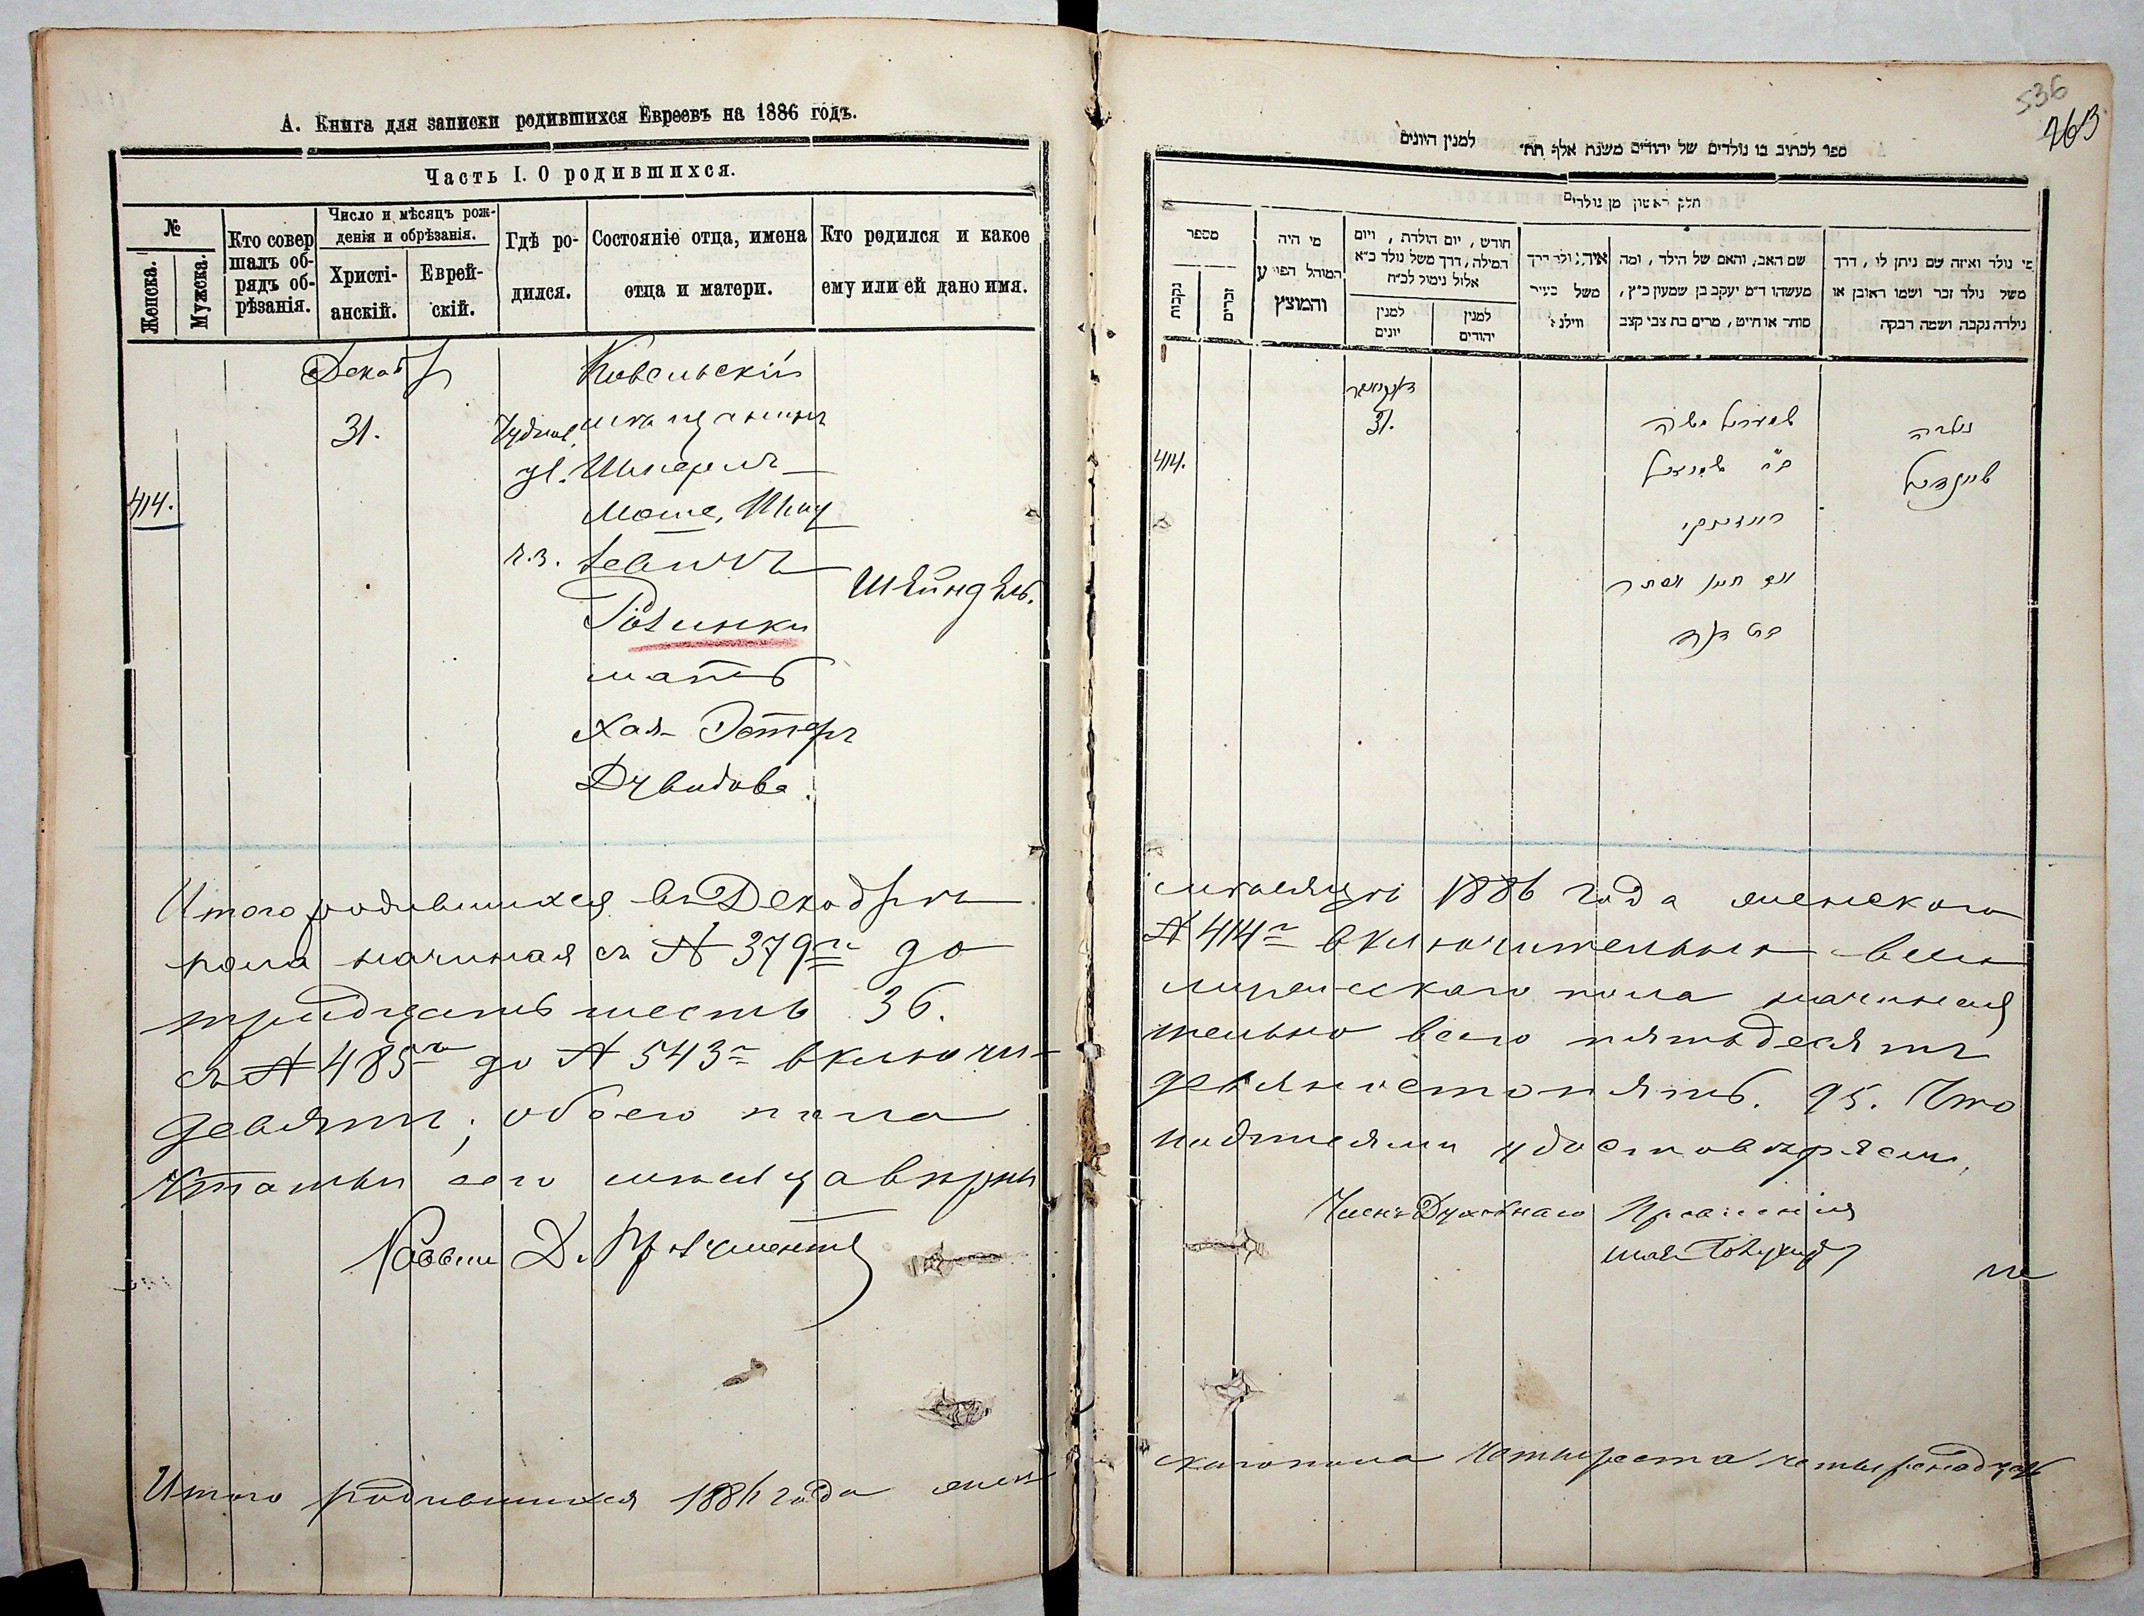 А. Книга для записки родившихся Евреевъ на 1886 годъ.
Часть I. О родившихся.
№
Женска.
Мужска.
Кто совер
шалъ об-
рядъ об-
рѣзанія.
Число и мѣсяцъ рож-
денія и обрѣзанія.
Христі-
анскій.
Еврей-
скій.
Гдѣ ро-
дился.
Состояніе отца, имена
отца и матери.
Кто родился и какое
ему или ей дано имя.
414.
Декабрь
31.
ул.
Ковельскій
мѣщанинъ
Шмерилъ
Моше,
Левинъ
мать
Хая Эстеръ
Давидова.
Шейндель.
Итого родившихся въ Декабрѣ
пола начиная съ № 379го до
тридцать шесть 36.
съ № 485го до № 543го включи-
девять; обоего пола
сего мѣсяца вѣрны
Раввинъ Д.
Итого родившихся 1886 года жен
536
263
ספר לכתוב בו נולדים של יהודים משנת אלף תת״ למנין היונים
חלק ראשון מן נולדים
מספר
נקבות
זכרים
מי היה
המוהל הפורע
והמוצץ
חודש, יום הולדת, ויום
המילה, דרך משל נולד כ״א
אלול נימול לכ״ח
למנין
יונים
למנין
יהודים
איה נולד דרך
משל בעיר
ווילנא
שם האב, והאם של הילד, ומה
מעשהו ד״מ יעקב בן שמעון כ״ץ,
סוחר או חייט, מרים בת צבי קצב
מי נולד ואיזה שם ניתן לו, דרך
משל נולד זכר ושמו ראובן או
נילדה נקבה ושמה רבקה
414.
31.
שמעריל משה
חיה אסתר
בת דוד
נולדה
שיינדיל
мѣсяцѣ 1886 года женскаго
№ 414го включительно всего
мужескаго пола начиная
тельно всего пятьдесятъ
девяносто пять. 95. Что
подписями удостовѣряемъ,
Членъ Духовнаго Правленія
скаго пола четыреста четырнадцать